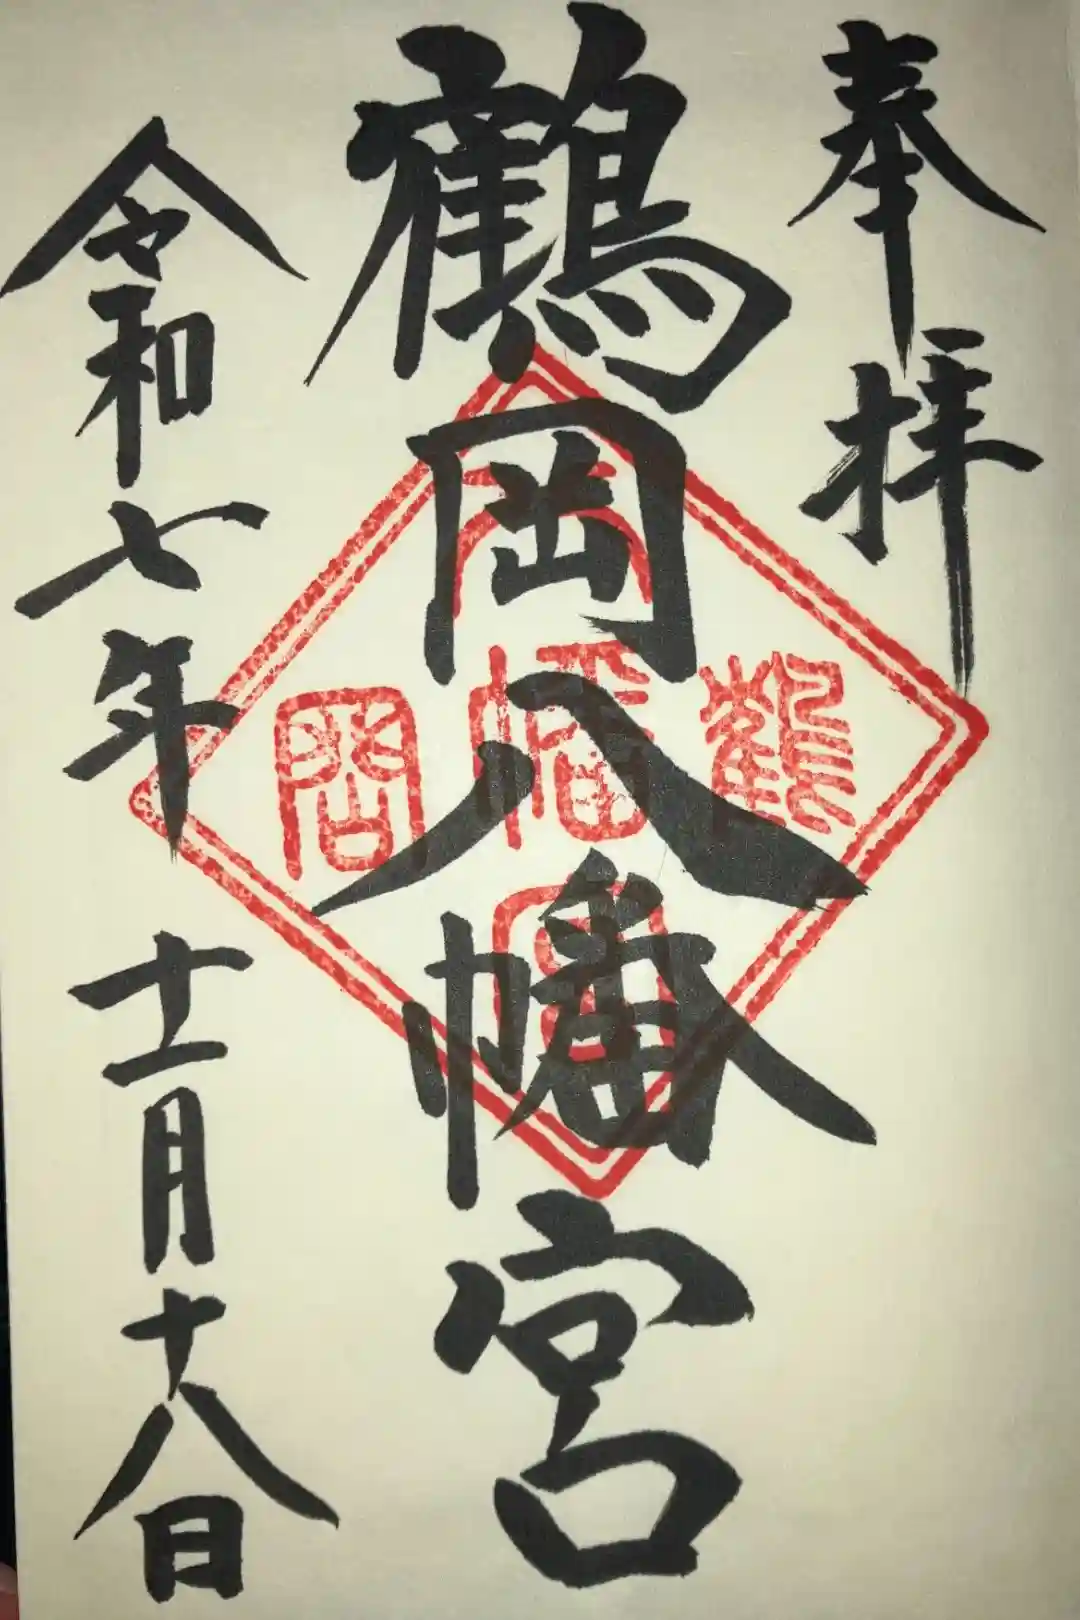 奉拝
鶴岡八幡宮
令和七年 十一月十八日
鶴
八幡宮
岡